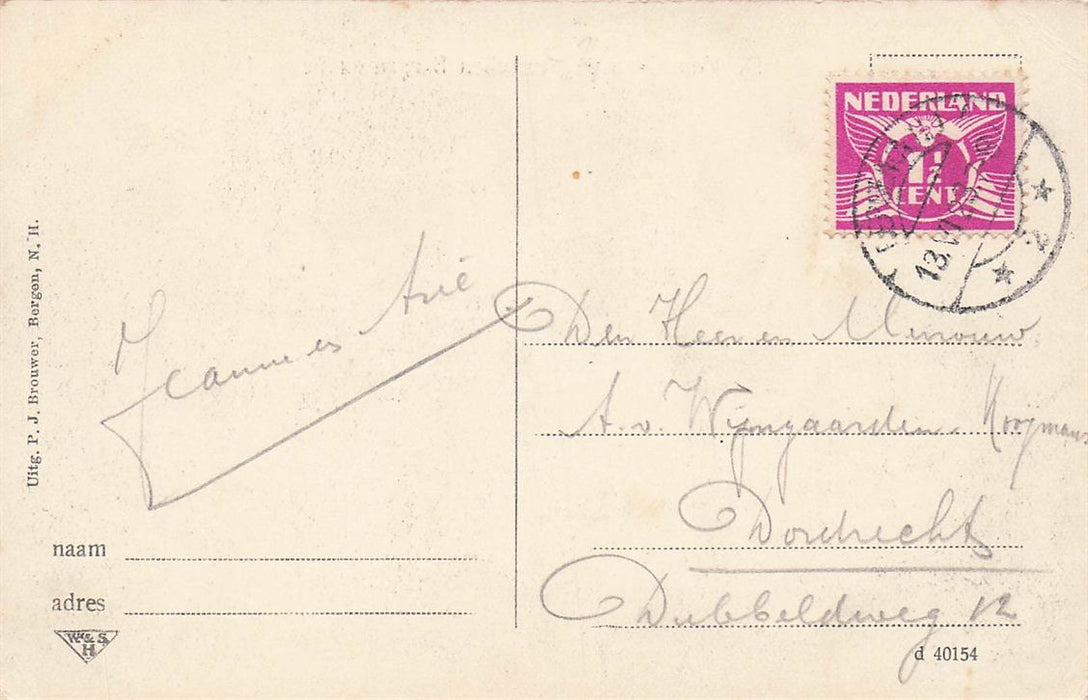 Uitg. P. J. Brouwer, Bergen, N. H.
Jeanne en Arie
naam
adres
W. & S.
H
NEDERLAND
1½
CENT
13.VI
2
Den Heer en Mevrouw
A. v. Wijngaarden. Koopmans
Dordrecht
Dubbeldweg 12
d 40154